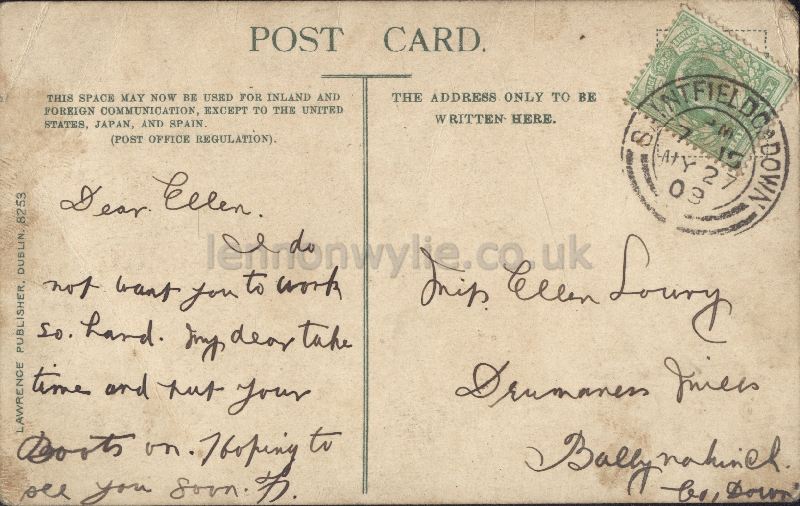 POST CARD.
THIS SPACE MAY NOW BE USED FOR INLAND AND
FOREIGN COMMUNICATION, EXCEPT TO THE UNITED
STATES, JAPAN, AND SPAIN.
(POST OFFICE REGULATION).
THE ADDRESS ONLY TO BE
WRITTEN HERE.
SAINTFIELD CO DOWN
MY 27
09
LAWRENCE PUBLISHER, DUBLIN. 8253
Dear Ellen.
I do
not want you to work
so. hard. my dear take
time and put your
Boots on. Hoping to
see you soon.
Miss Ellen Lowry
Drumaness Mills
Ballynahinch.
Co, Down
lennonwylie.co.uk